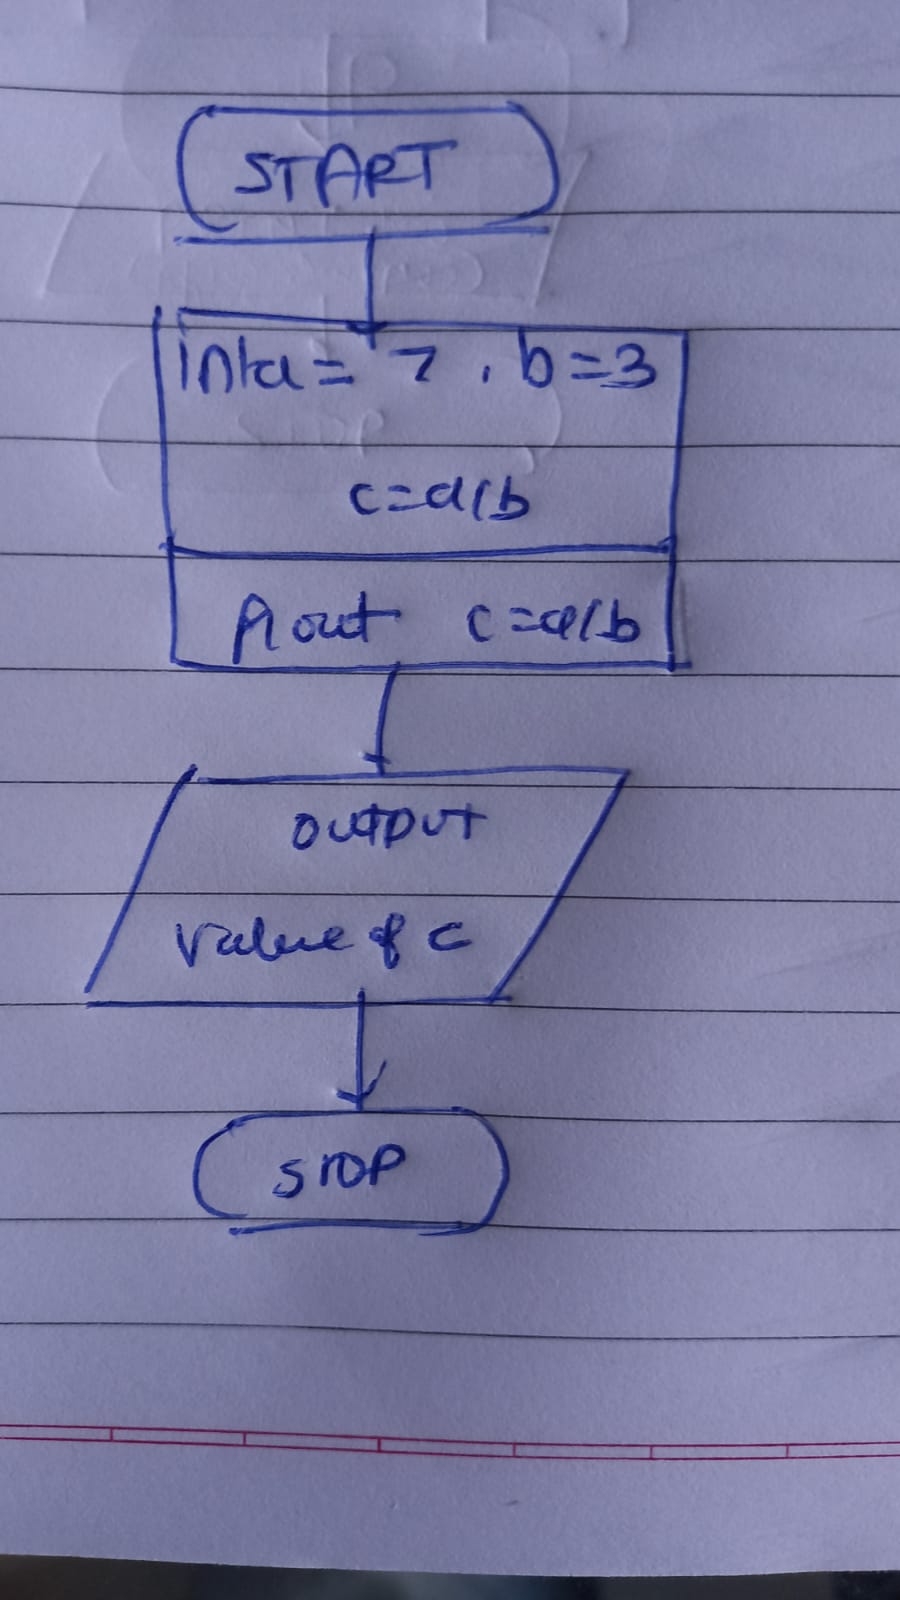 START
int a = 7 , b = 3
c = a/b
float c = a/b
OUTPUT
value of c
STOP